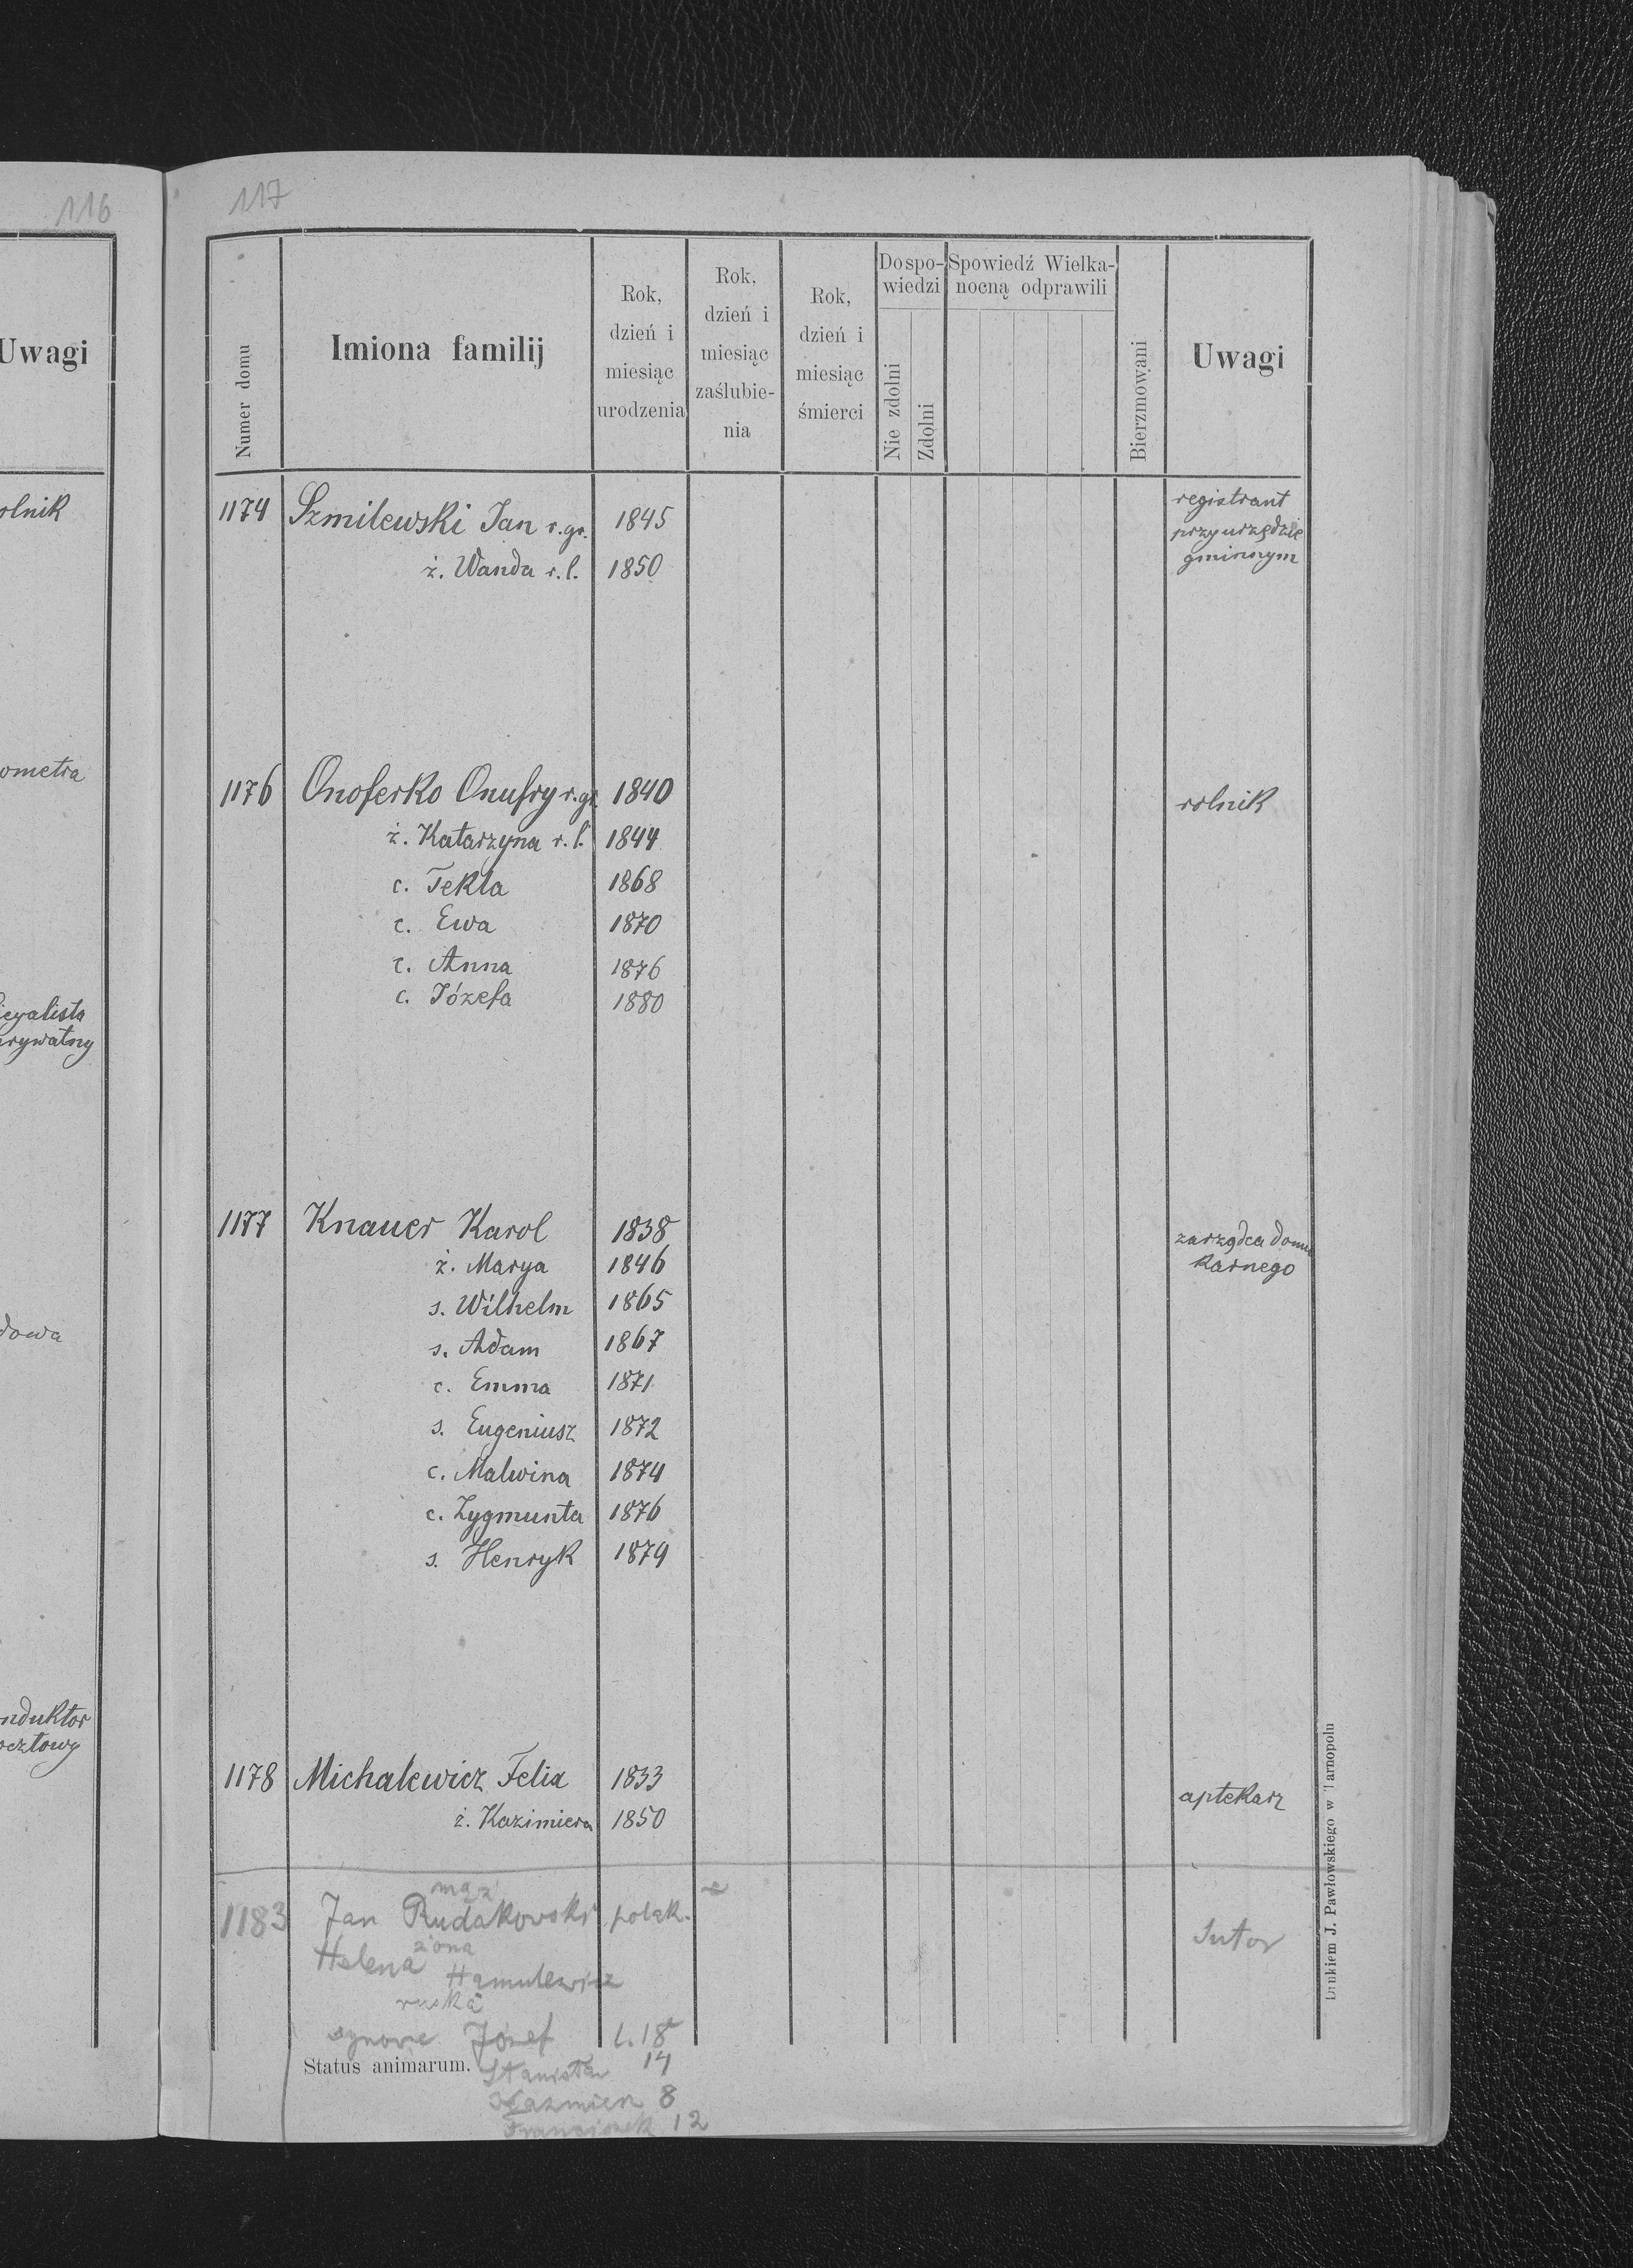 116
117
Uwagi
Numer domu
Imiona familij
Rok, dzień i miesiąc urodzenia
Rok, dzień i miesiąc zaślubie-nia
Rok, dzień i miesiąc śmierci
Do spo-wiedzi
Nie zdolni
Zdolni
Spowiedź Wielka-nocną odprawili
Bierzmowani
Uwagi
olnik
ometra
icyalista
prywatny
dowa
nduktor
ocztowy
1174 Szmilewski Jan r.gr. 1845 registrant
przy urzędzie
ż. Wanda r.l. 1850 gminnym
1176 Onoferko Onufry r.gr. 1840 rolnik
ż. Katarzyna r.l. 1844
c. Tekla 1868
c. Ewa 1870
c. Anna 1876
c. Józefa 1880
1177 Knauer Karol 1838 zarządca domu
ż. Marya 1846 karnego
s. Wilhelm 1865
s. Adam 1867
c. Emma 1871
s. Eugeniusz 1872
c. Malwina 1874
c. Zygmunta 1876
s. Henryk 1879
1178 Michalewicz Felix 1833 aptekarz
ż. Kazimiera 1850
mąż
1183 Jan Rudakowski polak. Sutor
żona
Helena Hamulewicz
ruska
synowie Józef l. 18
Status animarum. Stanisław 14
Kazmierz 8
Franciszek 12
Drukiem J. Pawłowskiego w Tarnopolu